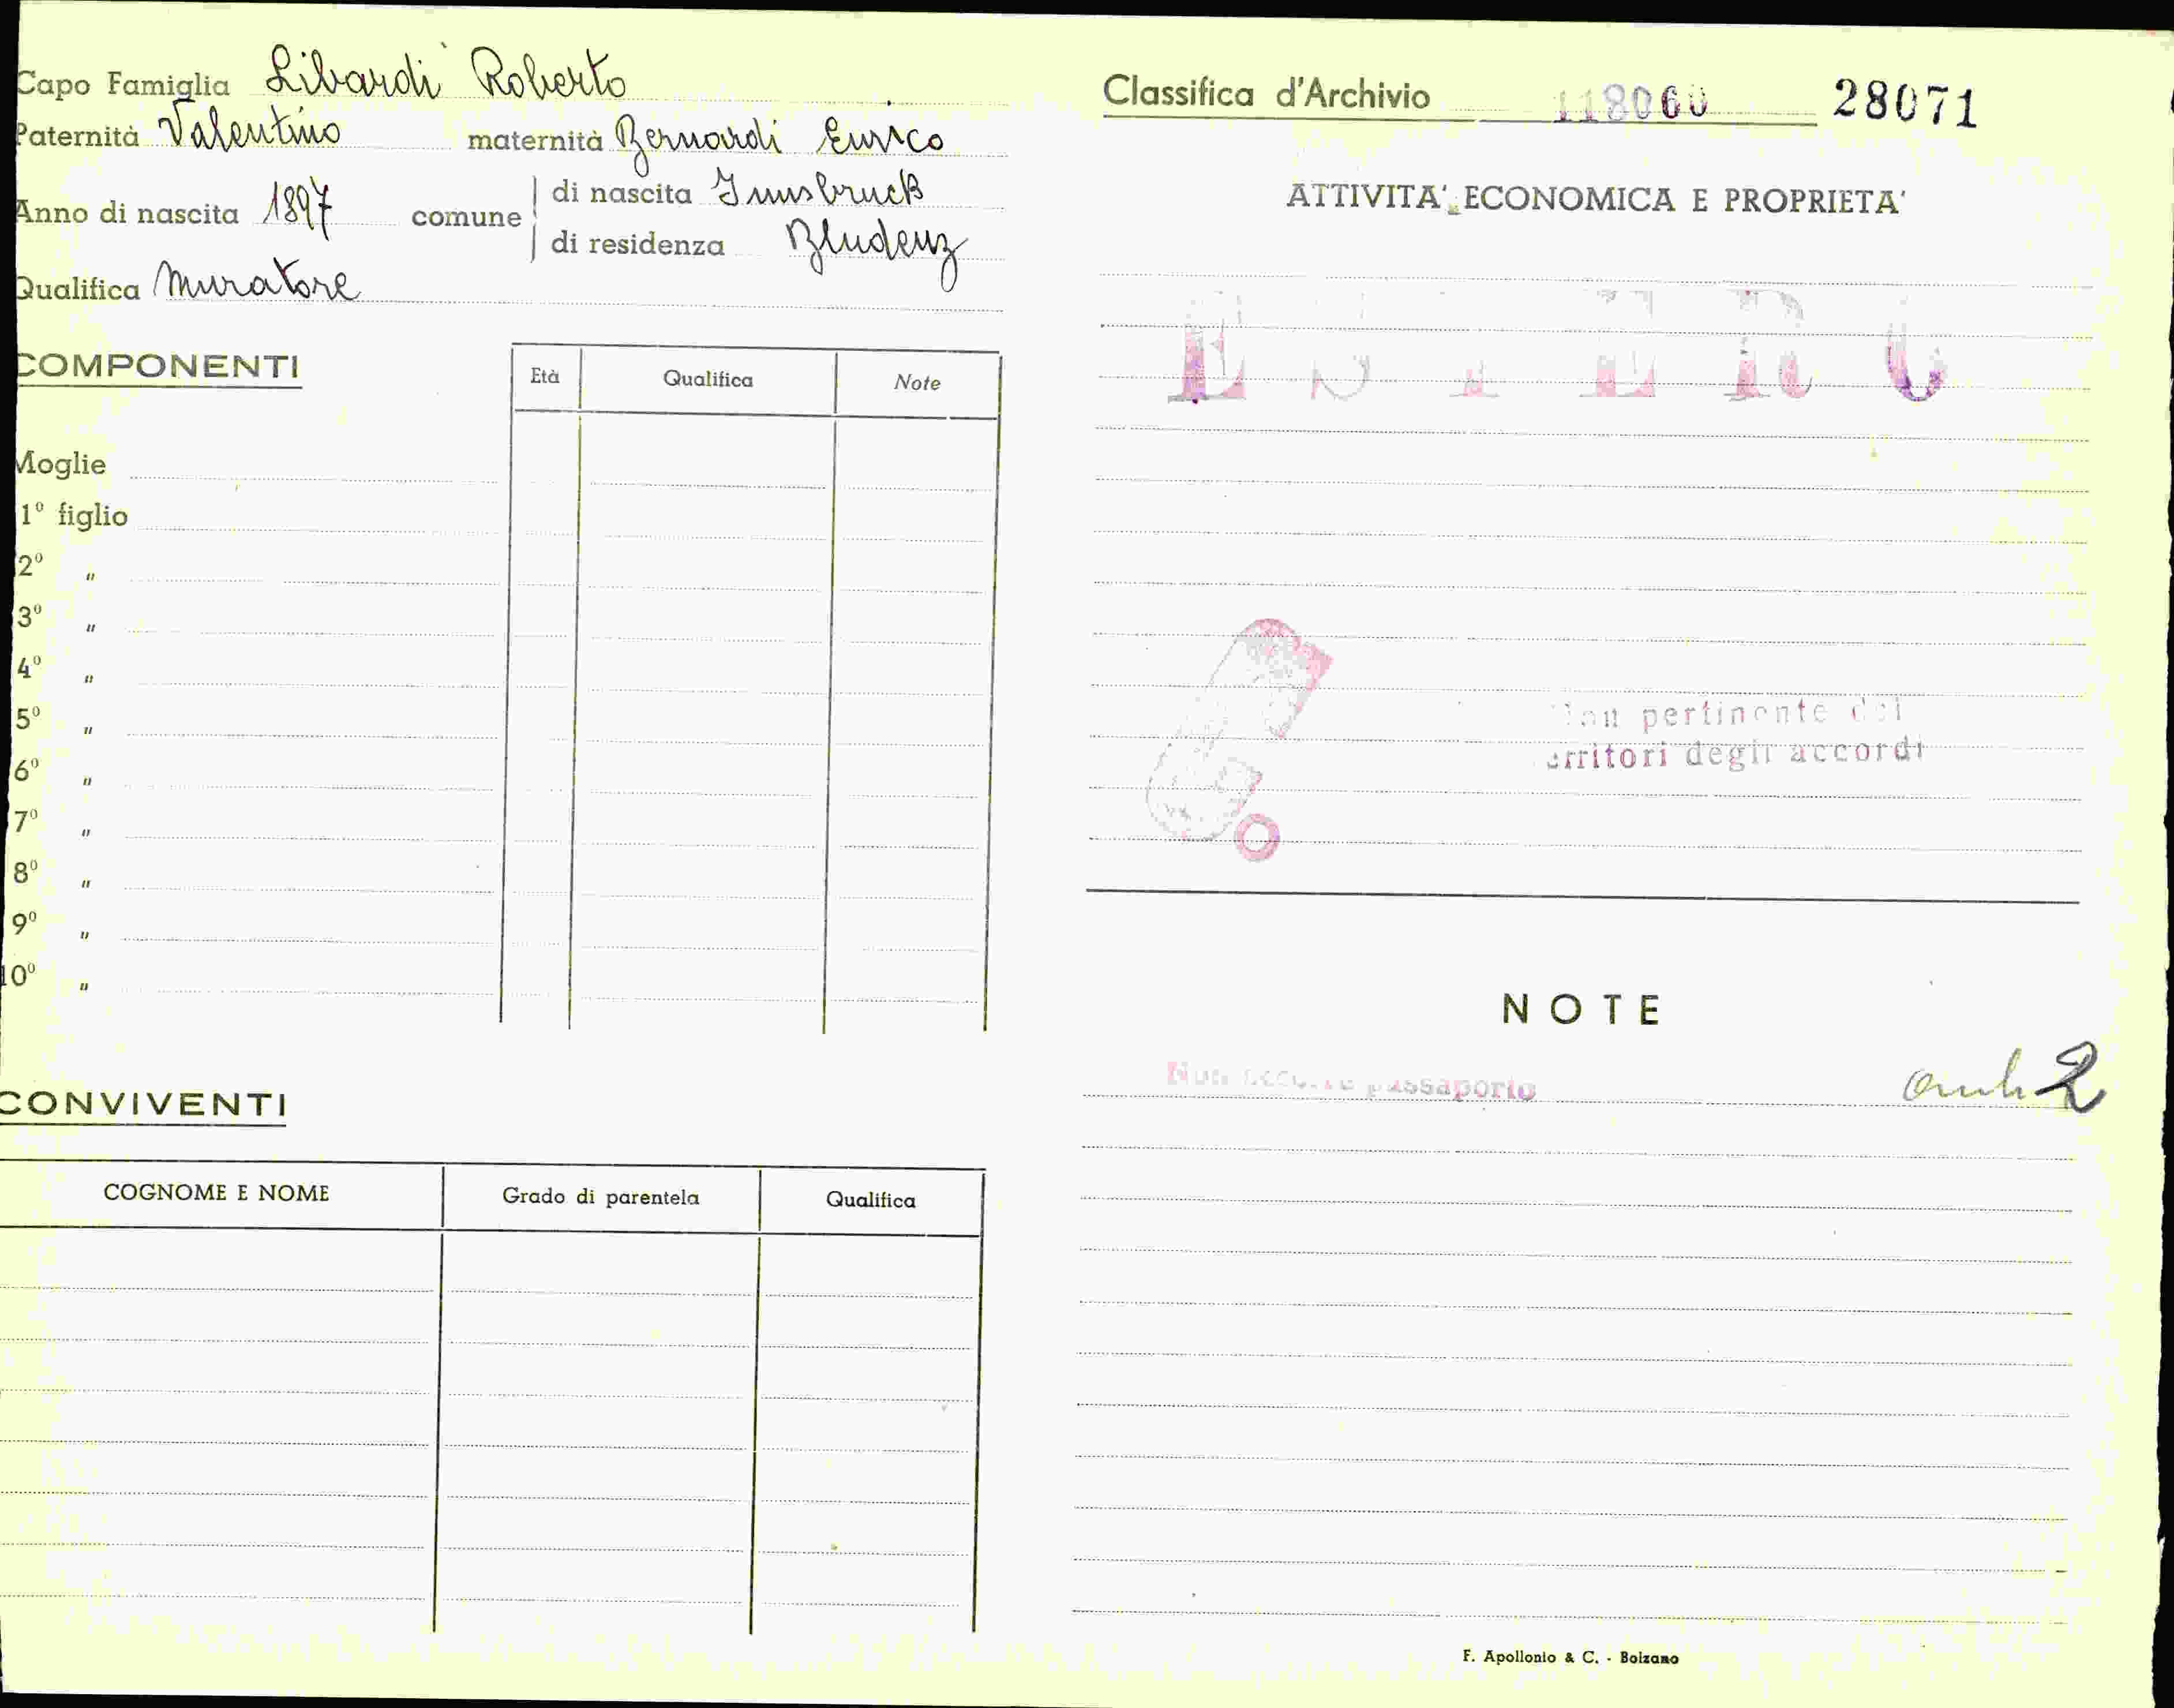 Capo Famiglia Libardi Roberto
Paternità Valentino maternità Bernardi Enrico
Anno di nascita 1897 comune di nascita Innsbruck
di residenza Bludenz
Qualifica Muratore
COMPONENTI
Età Qualifica Note
Moglie
1º figlio
2º "
3º "
4º "
5º "
6º "
7º "
8º "
9º "
10º "
CONVIVENTI
COGNOME E NOME Grado di parentela Qualifica
Classifica d'Archivio 118060 28071
ATTIVITA' ECONOMICA E PROPRIETA'
ESTERO
Non pertinente dei
territori degli accordi
NOTE
Non occorre passaporto
2
F. Apollonio & C. - Bolzano